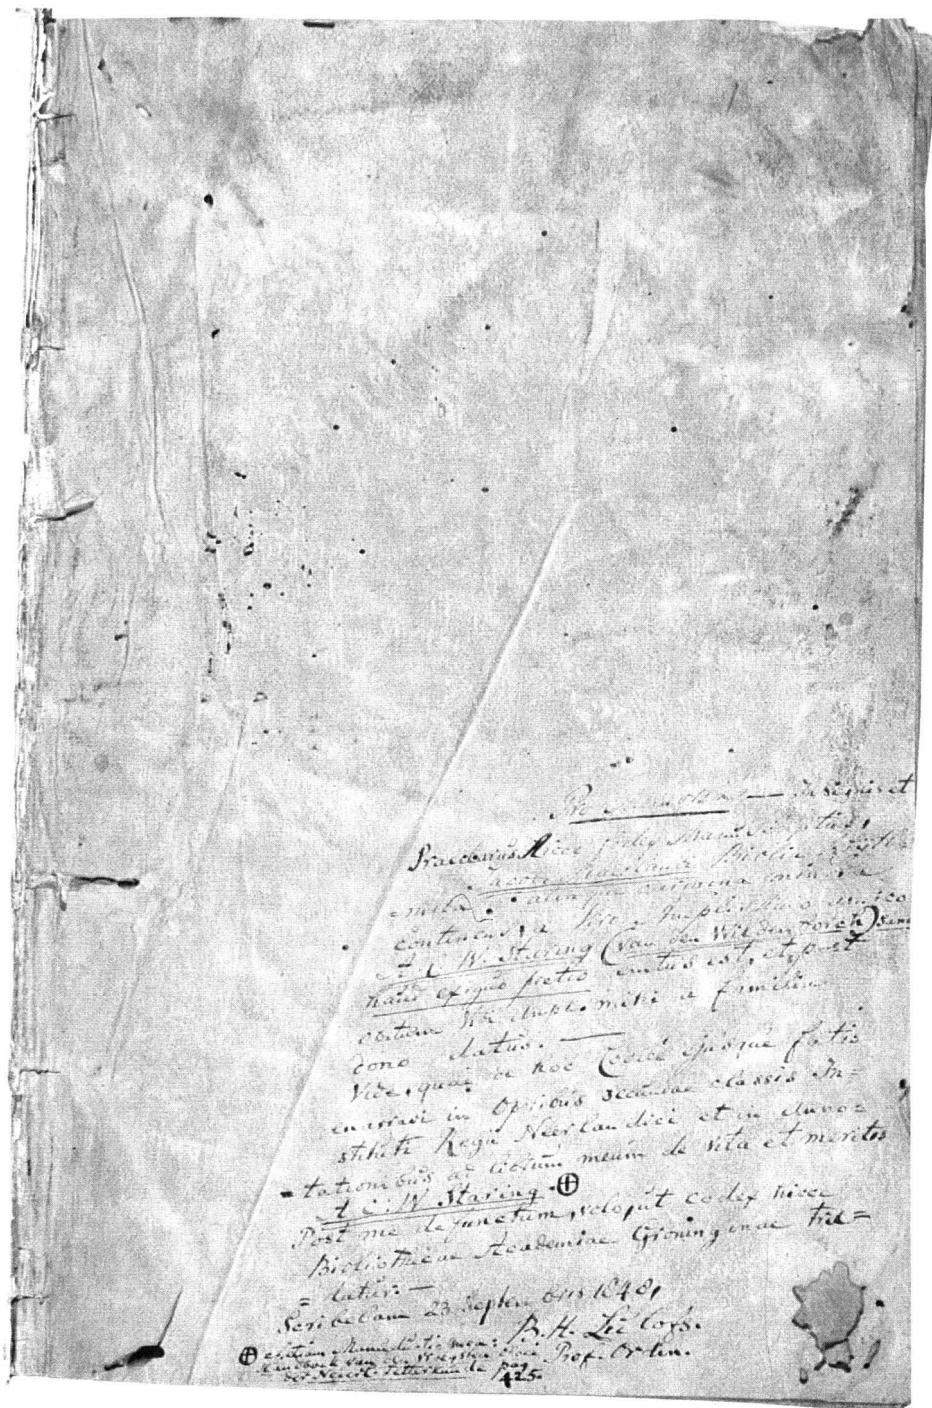 Pro memoria — in signis et
Praeclarus hicce Codex Manuscriptus,
Jacobi Maerlandi Biblia Rythm
=mica, aliaque carmina
continens, a Viro Amplissimo amico
A. C. W. Staring (van den Wildenborch) sane
haud exiguo pretio emtus est, et post
obitum Viri Ampl. mihi a familia
dono datus. —
Vide, quae de hoc Codice ejusque fatis
enarravi in Operibus secundae classis In=
stituti Regii Neerlandici et in Anno=
=tationibus ad Elogium meum de vita et meritis
A. C. W. Staring. ⊕
Post me defunctum, volo, ut codex hicce
Bibliothecae Academiae Groninganae tra=
=datur. —
Scribebam 23 Septembris 1848,
B. H. Lulofs.
Prof. Ordin.
⊕ etiam Manuductio mea:
Handboek van den vroegsten bloei
der Nederl. Letterkunde pag
425.